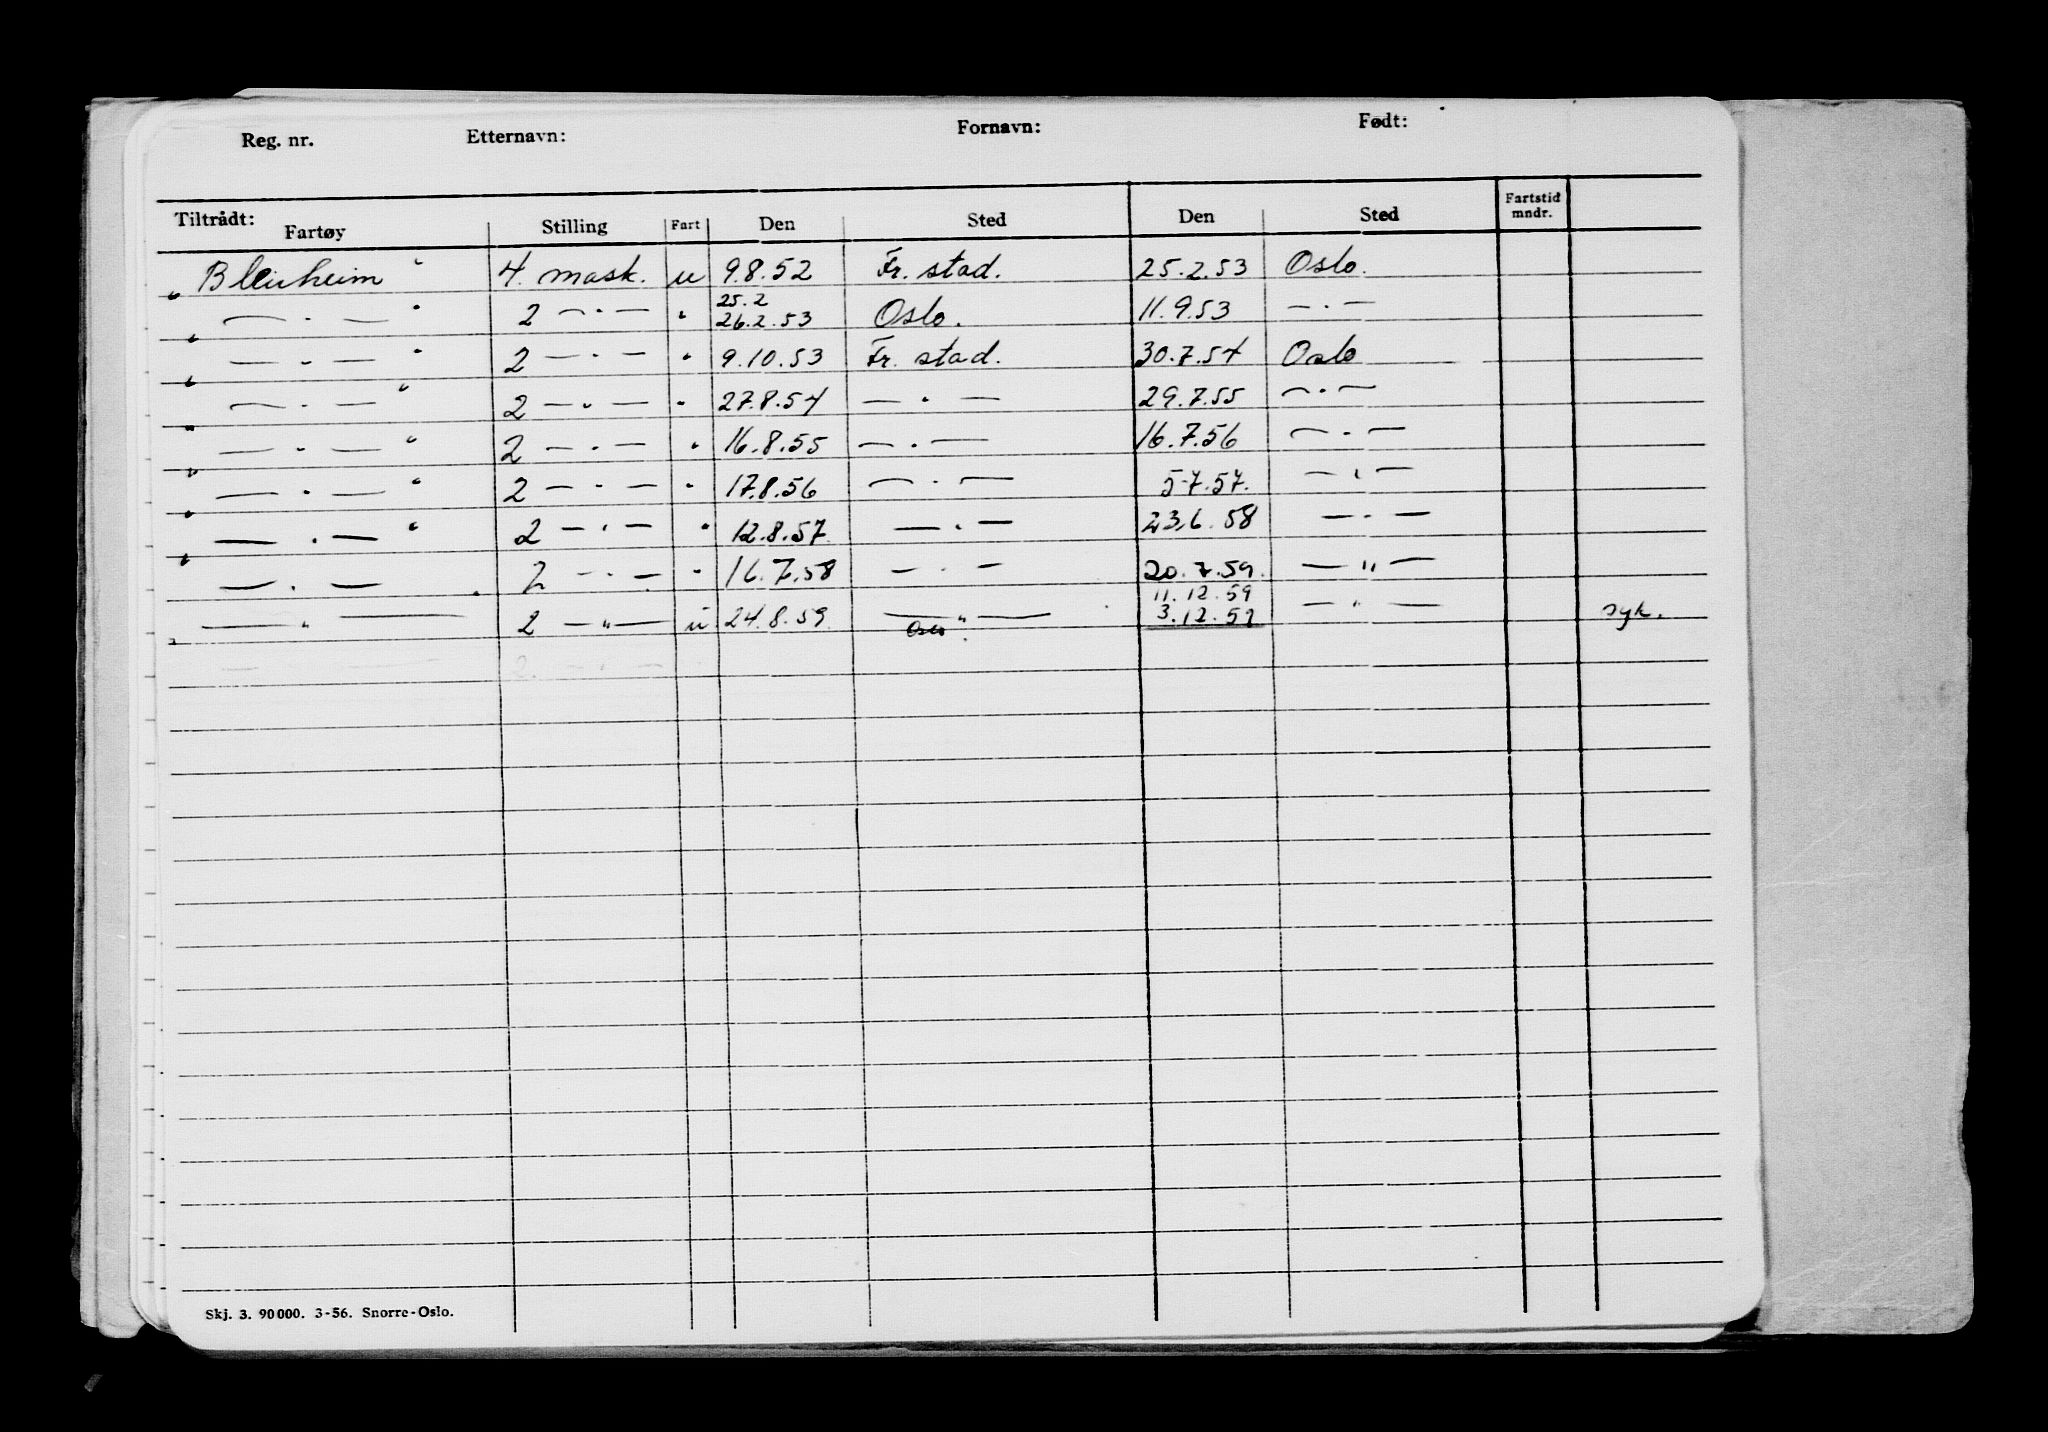 Reg. nr. Etternavn: Fornavn: Født:
Tiltrådt: Fartøy Stilling Fart Den Sted Den Sted Fartstid mndr.
" Blenheim " 4. mask. u 9.8.52 Fr. stad. 25.2.53 Oslo.
" — " — " 2 — " — " 25.2 26.2.53 Oslo. 11.9.53 — " —
" — " — " 2 — " — " 9.10.53 Fr. stad. 30.7.54 Oslo
" — " — " 2 — " — " 27.8.54 — " — 29.7.55 — " —
" — " — " 2 — " — " 16.8.55 — " — 16.7.56 — " —
" — " — " 2 — " — " 17.8.56 — " — 5.7.57. — " —
" — " — " 2 — " — " 12.8.57. — " — 23.6.58 — " —
" — " — 2 — " — " 16.7.58 — " — 20.7.59. — " —
— " — 2 — " — u 24.8.59. — " — Oslo. 11.12.59 3.12.59 — " — syk.
— — 2. — " —
Skj. 3. 90 000. 3-56. Snorre-Oslo.